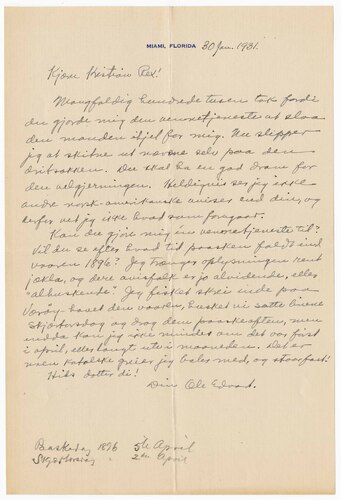 MIAMI, FLORIDA 30 Jan. 1931.
Kjære Kristian Prest!
Mangfoldig hundrede tusen tak fordi
du gjorde mig den vennetjeneste at slaa
den manden ihjel for mig. Nu slipper
jeg at skitne ut nævene selv paa den
dritsekken. Du skal ha en god dram for
den velgjerningen. Heldigvis ser jeg ikke
andre norsk-amerikanske aviser end din, og
derfor vet jeg ikke hvad som foregaar.
Kan du gjøre mig en vennetjeneste til?
Vil du se efter hvad tid paasken faldt ind
vaaren 1896? Jeg trænger oplysningen rent
og dere avisfolk er jo alvidende, eller
"alhuskende". Jeg fisket skrei inde paa
Værøy-havet den vaaren, husker vi satte linene
skjærtorsdag og drog dem paaskeaften, men
endda kan jeg ikke mindes om det var først
i april, eller langt ute i maaneden. Det er
noen katolske greier jeg bales med, og staarfast!
Hils dotter di!
Din Ole Edvart.
Paaskedag 1896 5te April
Skjærtorsdag " 2den April